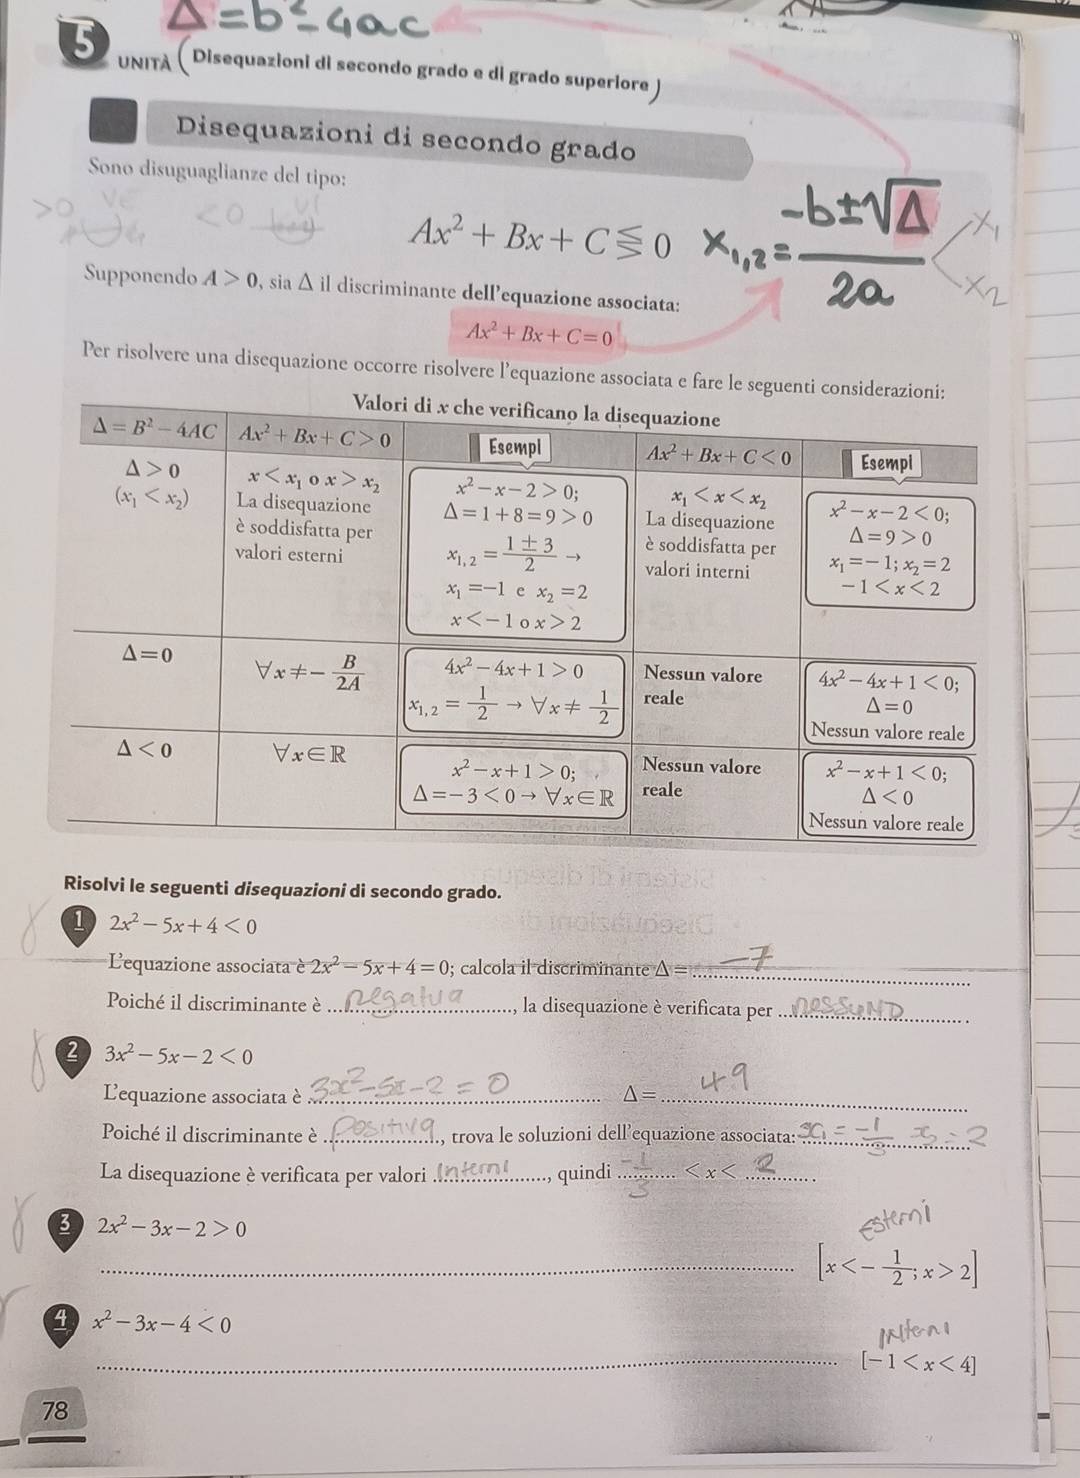 Δ = b² - 4ac
5 UNITÀ ( Disequazioni di secondo grado e di grado superiore )
Disequazioni di secondo grado
Sono disuguaglianze del tipo:
>0
<0
Ax² + Bx + C ⋚ 0
x₁,₂ = (-b ± √Δ) / 2a
x₁
x₂
Supponendo A > 0, sia Δ il discriminante dell'equazione associata:
Ax² + Bx + C = 0
Per risolvere una disequazione occorre risolvere l'equazione associata e fare le seguenti considerazioni:
Valori di x che verificano la disequazione
Δ = B² – 4AC
Ax² + Bx + C > 0
Esempi
Ax² + Bx + C < 0
Esempi
Δ > 0
(x₁ < x₂)
x < x₁ o x > x₂
La disequazione
è soddisfatta per
valori esterni
x² – x – 2 > 0;
Δ = 1 + 8 = 9 > 0
x₁,₂ = (1 ± 3) / 2 →
x₁ = –1 e x₂ = 2
x < –1 o x > 2
x₁ < x < x₂
La disequazione
è soddisfatta per
valori interni
x² – x – 2 < 0;
Δ = 9 > 0
x₁ = –1; x₂ = 2
–1 < x < 2
Δ = 0
∀x ≠ – B/2A
4x² – 4x + 1 > 0
x₁,₂ = 1/2 → ∀x ≠ 1/2
Nessun valore
reale
4x² – 4x + 1 < 0;
Δ = 0
Nessun valore reale
Δ < 0
∀x ∈ ℝ
x² – x + 1 > 0;
Δ = –3 < 0 → ∀x ∈ ℝ
Nessun valore
reale
x² – x + 1 < 0;
Δ < 0
Nessun valore reale
Risolvi le seguenti disequazioni di secondo grado.
1 2x² – 5x + 4 < 0
L'equazione associata è 2x² – 5x + 4 = 0; calcola il discriminante Δ = -7
Poiché il discriminante è negativa, la disequazione è verificata per nessuno.
2 3x² – 5x – 2 < 0
L'equazione associata è 3x² - 5x - 2 = 0 Δ = 49
Poiché il discriminante è positiva, trova le soluzioni dell'equazione associata: x₁ = -1/3 x₂ = 2
La disequazione è verificata per valori interni, quindi -1/3 < x < 2.
3 2x² – 3x – 2 > 0
Esterni
[x < – 1/2; x > 2]
4 x² – 3x – 4 < 0
interni
[–1 < x < 4]
78